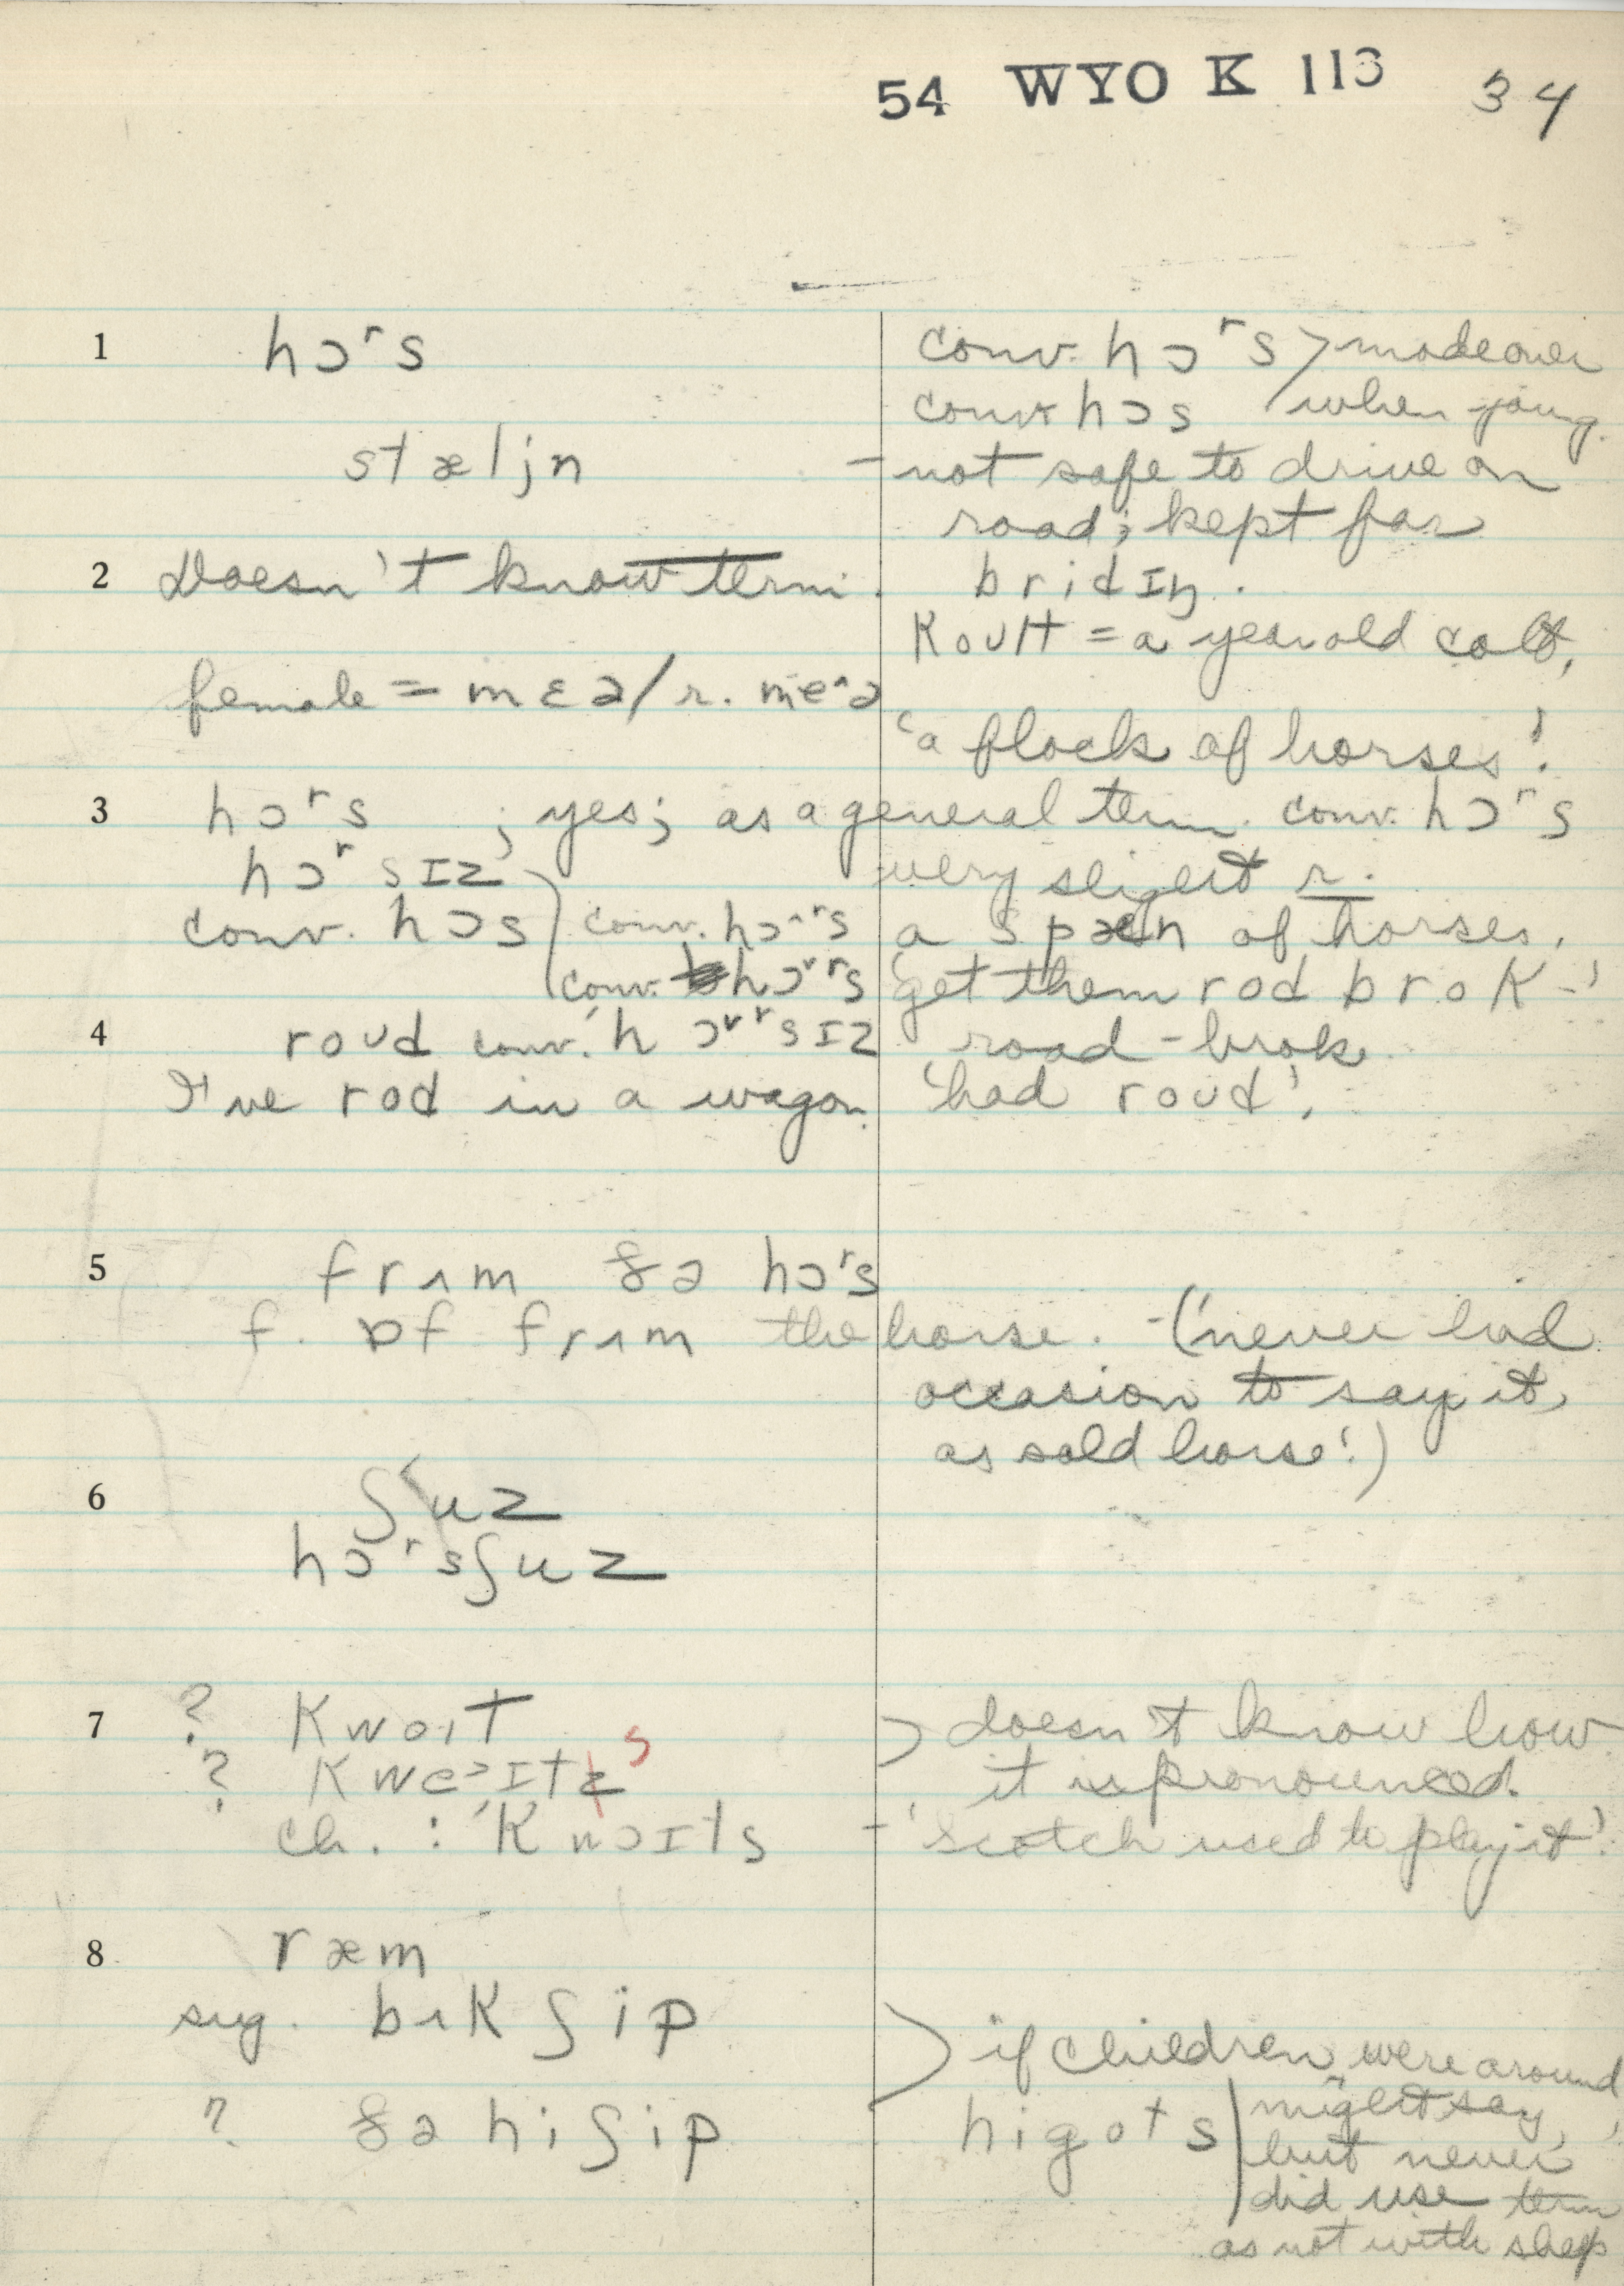 54 WYO K 113 34
1 hɔʳs conv. hɔʳs > made over
conv. hɔs / when young.
stæljn – not safe to drive on
road; kept for
2 Doesn't know term. bridɪŋ.
koult = a year old colt.
female = mɛə / r. me^ə
'a flock of horses'.
3 hɔʳs ; yes; as a general term. conv. hɔʳs
hɔʳsɪz very slight r.
conv. hɔs conv. hɔ^ʳs a spæn of horses.
conv. hɔ˅ʳs 'get them rod brok –'
4 roud conv. hɔ˅ʳsɪz road-broke
I've rod in a wagon. 'had roud'.
5 frʌm ðə hɔʳs
f. ɒf frʌm the horse. – ('never had
occasion to say it,
as sold horse'.)
6 ʃ˂uz
hɔʳsʃuz
7 ? kwoɪt > doesn't know how
? s it is pronounced.
ch. : 'kwɔɪts – 'Scotch used to play it'.
8 ræm
sug. bʌk ʃip > if children were around
? ðə hiʃip higots | might say,
but never
did use term
as not with sheep